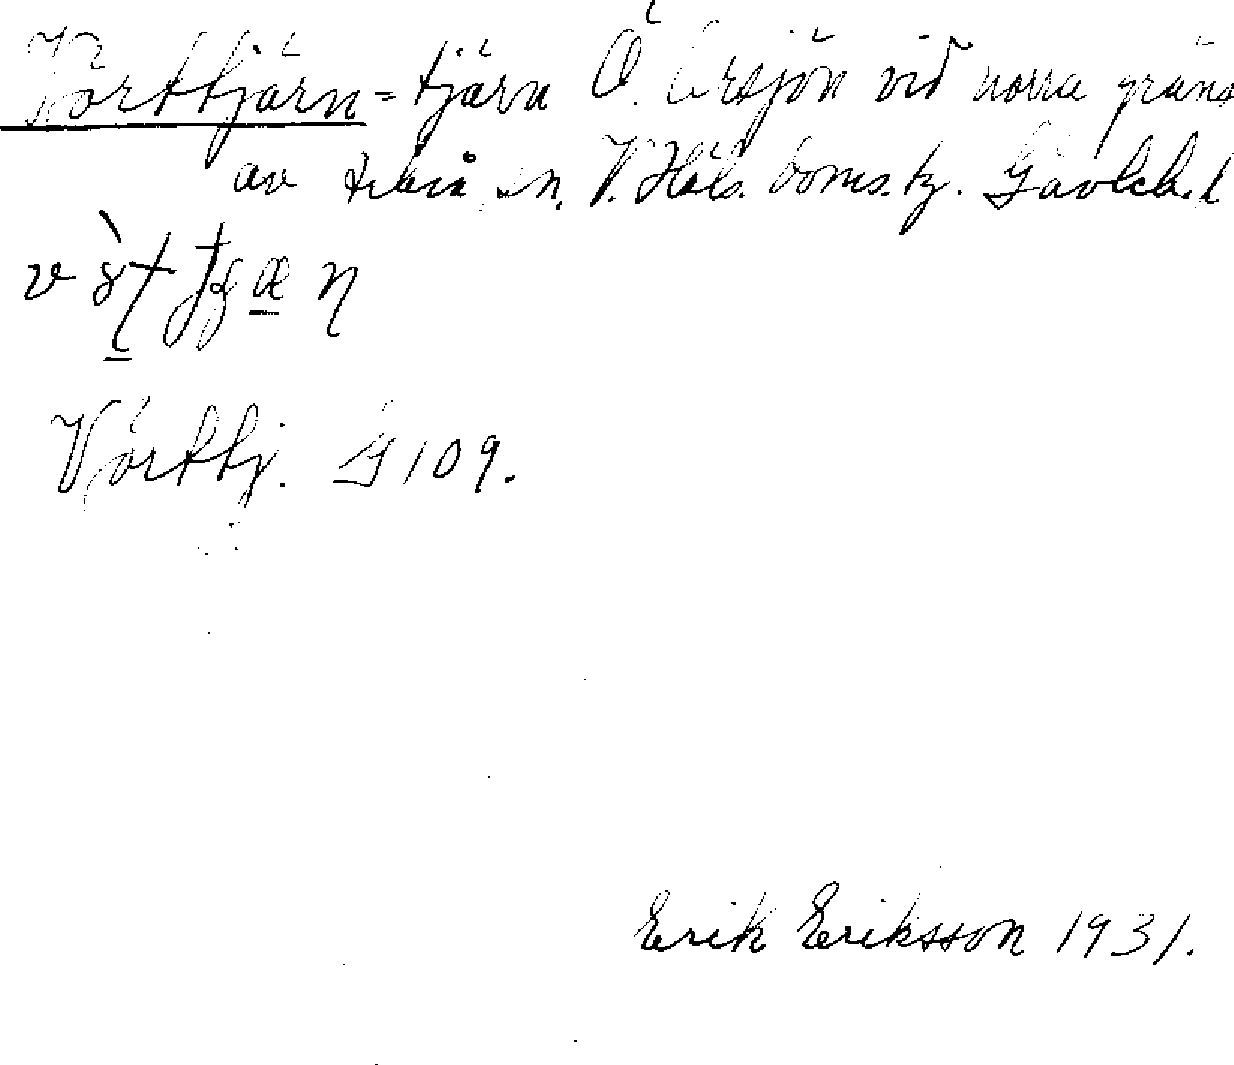 Vörttjärn = tjärn Ö. Ersjön vid norra gräns
av sn. V. Häls. doms. tj. Gävleb. l
Vörttj. G 109.
Erik Eriksson 1931.